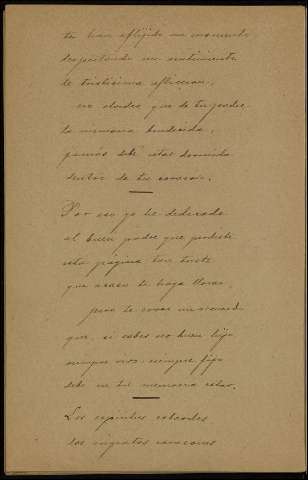 te han aflijido un momento
despertando un sentimiento
de tristísima aflicción,
no olvides que de tu padre
la memoria bendecida,
jamás debe estar dormida
dentro de tu corazón.
Por eso yo he dedicado
al buen padre que perdiste
esta página tan triste
que acaso te haga llorar,
pero te evoca un recuerdo
que, si eres un buen hijo
siempre vivo siempre fijo
debe en tu memoria estar.
Los espíritus cobardes
los ingratos corazones